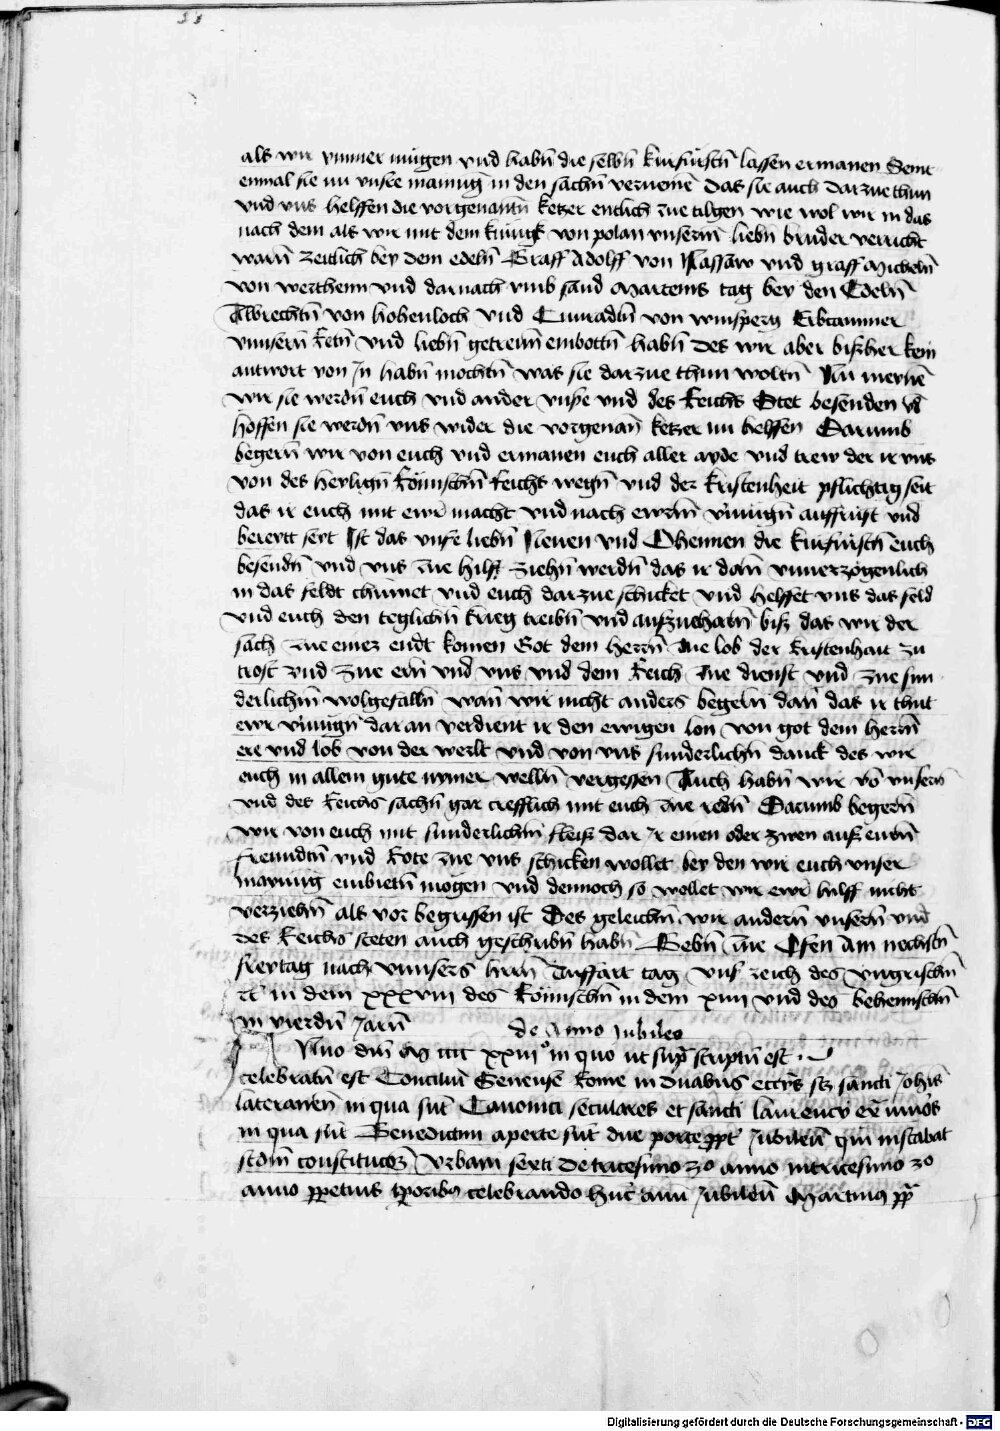 als wir ymmer mugen vnd habn̄ die selbn̄ kurfurstn̄ lassen ermanen Seint
einmal sie nu vnser mainūg in den sachn̄ vernemē das sie auch darzue thun
vnd vns helffen die vorgenantn̄ ketzer entlich zue tilgen wie wol wir in das
nach dem als wir mit dem kunigk von polan vnserm̄ liebn̄ bruder verricht
warn̄ zeitlich bey dem edeln̄ Graff Adolff von Nassaw vnd graff Micheln̄
von werthein vnd darnach vmb sand Marteins tag bey den Edeln̄
Albrechtn̄ von hohenloch vnd Cunradtn̄ von winsperg Erbcamrer
vnnsern̄ Retn̄ vnd liebn̄ getrewn̄ embottn̄ habn̄ des wir aber bißher kein
antwort von Jn habn̄ mochtn̄ was sie darzue thun woltn̄ Nu meynē
wir sie werdn̄ euch vnd ander vnße vnd des Reichs Stet besenden vn̄
hoffen sie werdn̄ vns wider die vorgenan̄ ketzer nu helffen Darumb
begern̄ wir von euch vnd ermanen euch aller ayde vnd trew der ir vns
von des heylign̄ Römischn̄ Reichs wegn̄ vnd der kristenheit pflichtig seit
das ir euch mit ewr̄ macht vnd nach ewrm̄ vmūgn̄ auffrüst vnd
bereytt seyt Ist das vnse liebn̄ Neuen vnd Oheimen die kurfurstn̄ euch
besendn̄ vnd vns zue hilff ziehn̄ werdn̄ das ir dan̄ vnuerzogenlich
in das feldt chumet vnd euch darzue schicket vnd helffet vns das feld
vnd euch den teglichn̄ krieg treibn̄ vnd aufzuehaltn̄ biß das wir der
sach zue einer endt komen Got dem herrn̄ zue lob der kristenhait zu
trost vnd zue ern̄ vnd vns vnd dem Reich zue dienst vnd zue sun
derlichm̄ wolgefalln̄ wan̄ wir nicht anders begern̄ dan̄ das ir thut
ewr vmūgn̄ dar an verdient ir den ewigen lon von got dem herrn̄
ere vnd lob von der werlt vnd von vns sunderlichn̄ danck des wir
euch in allem gute nymer welln̄ vergessen Auch habn̄ wir vō vnsern̄
vnd des Reichs sachn̄ gar trefflich mit euch zue redn̄ Darumb begern̄
wir von euch mit sunderlichm̄ fleiß dar Jr einen oder zwen auß ewrn̄
freundtn̄ vnd Rote zue vns schicken wollet bey den wir euch vnser
maynūg embietn̄ mogen vnd dennoch so wellet wir ewr̄ hilff nicht
verziehn̄ als vor begriffen ist Des geleichn̄ wir andern̄ vnsern̄ vnd
des Reichs steten auch geschribn̄ habn̄ Gebn̄ zue Ofen Am nechstn̄
freytag nach vnnsers hrn̄ Auffart tag vns' reich des vngrischn̄
rc' in dem xxxviii des Römischn̄ in dem xiiii vnd des behemischn̄
in vierdn̄ Jarn̄
de Anno Jubileo
Anno dn̄i M cccc xxiii° in quo ut sup̄ scriptū est
celebratū est Conciliū Senense Rome in duabus eccīs sc̄z sancti Joh̄is
lateranen̄ in qua sūt Canonici seculares et sancti laurencij ext̄ muros
in qua sūt Benedictini aperte sūt due porte ꝓpt' Jubileū qui instabat
scdm̄ constitucōꝫ Vrbani sexti de tricesimo 3o anno in tricesimo 3o
anno ꝑpetuis tꝑoribꝰ celebrando Huc annū Jubileū Martinus pp̄